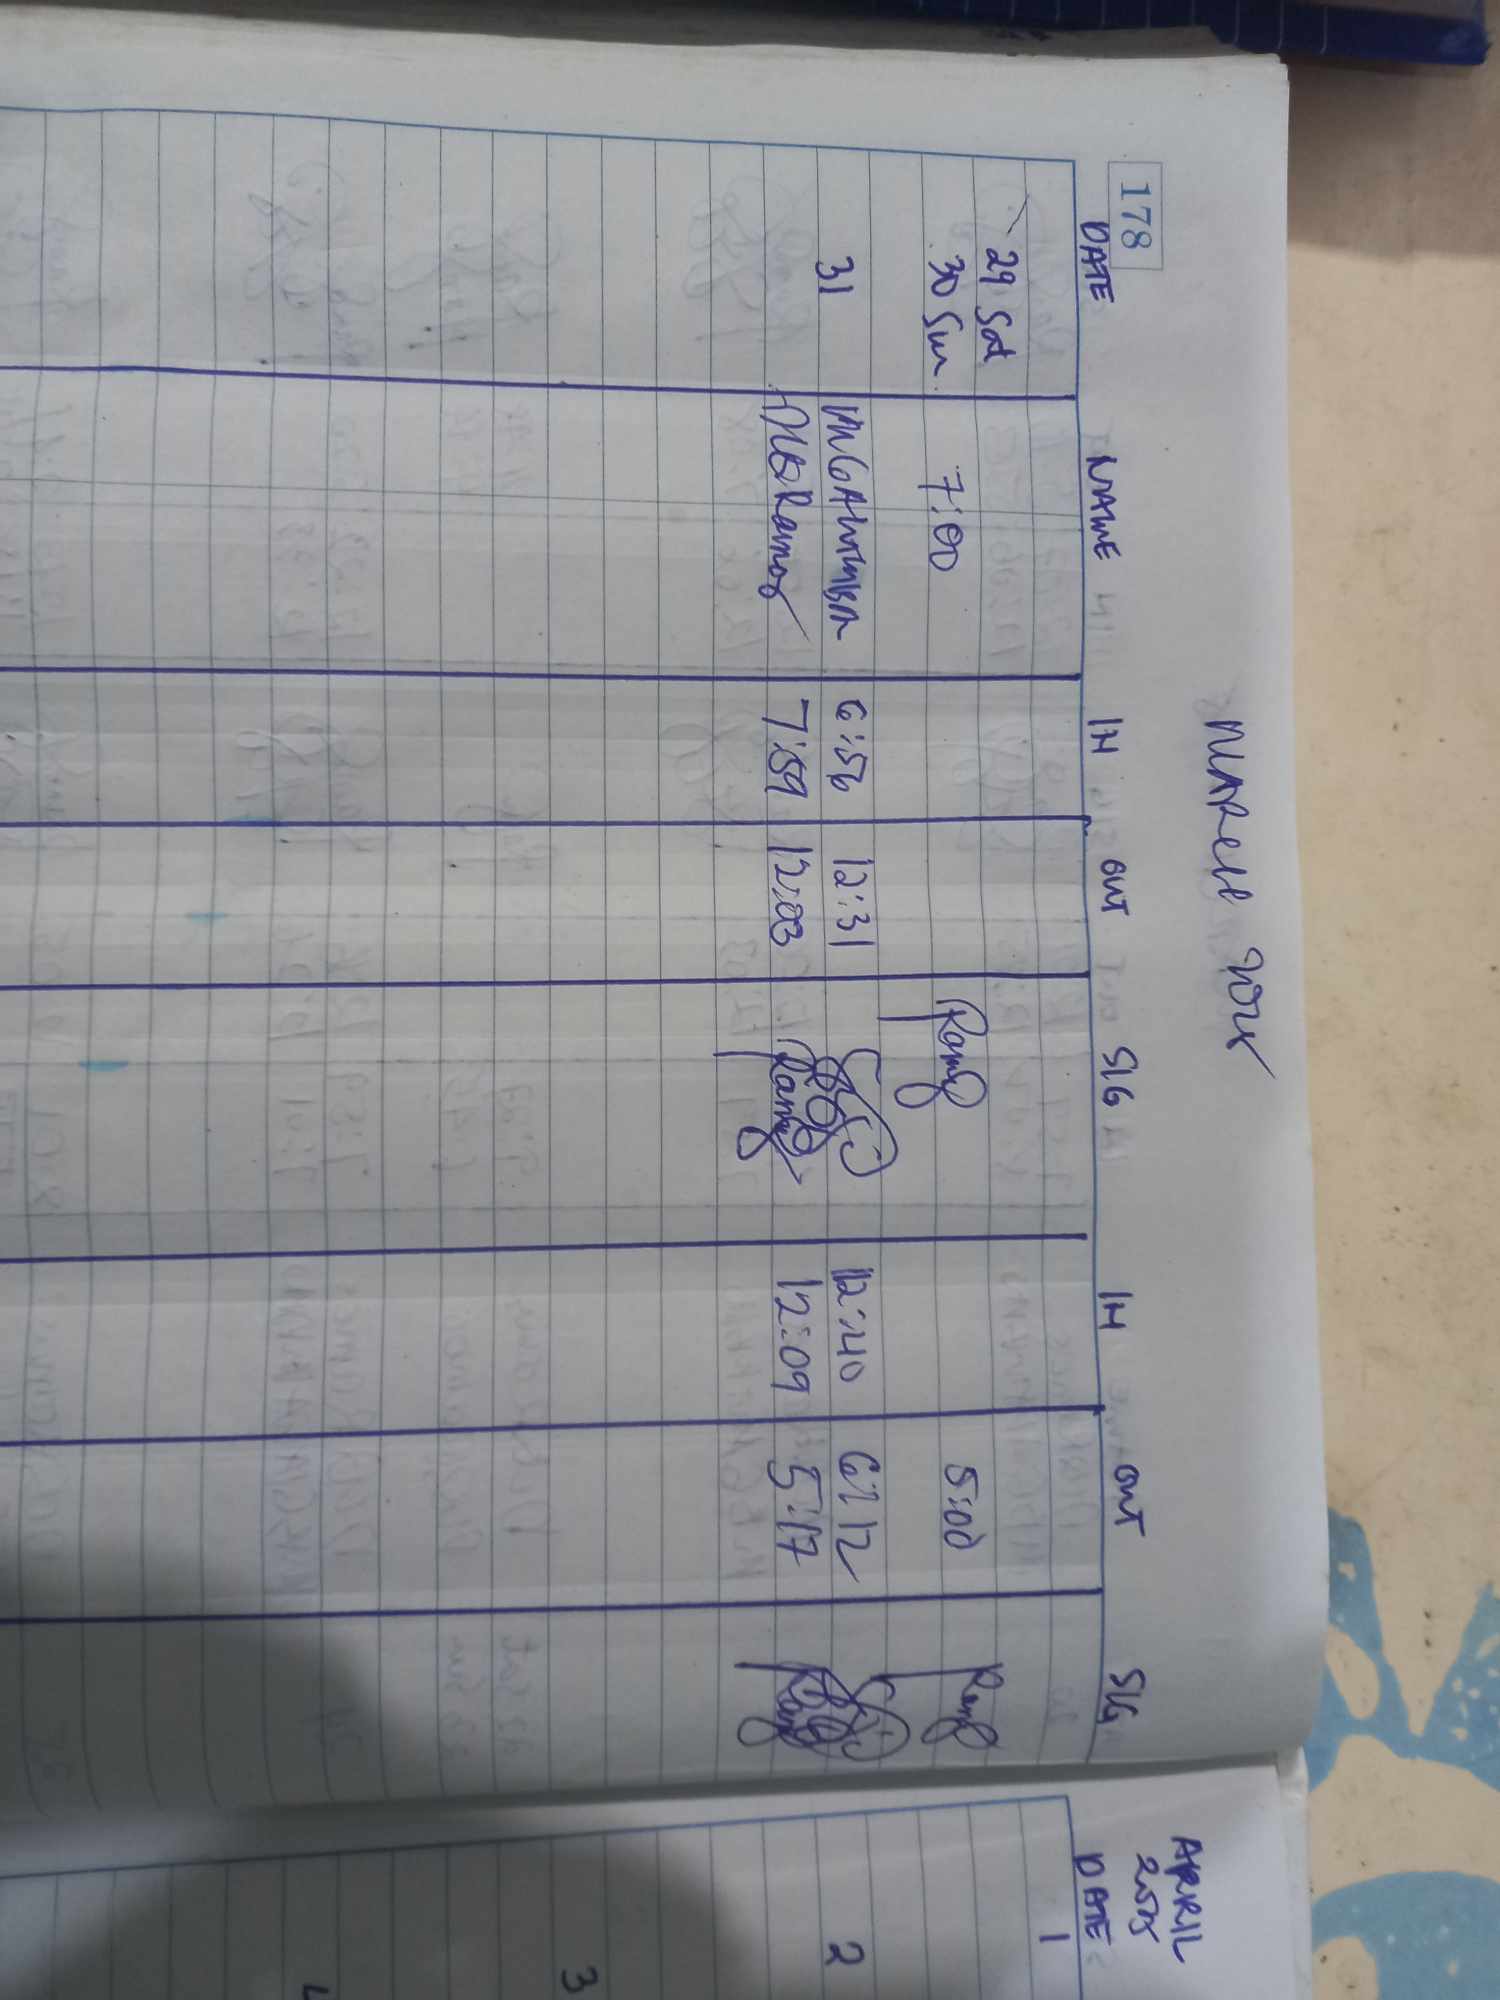 178
MARCH 2025
DATE NAME IN OUT SIG IN OUT SIG
29 Sat
30 Sun 7:00 5:00
31 6:56 12:31 12:40 6:12
7:59 12:03 12:09 5:17
APRIL
2025
DATE
1
2
3